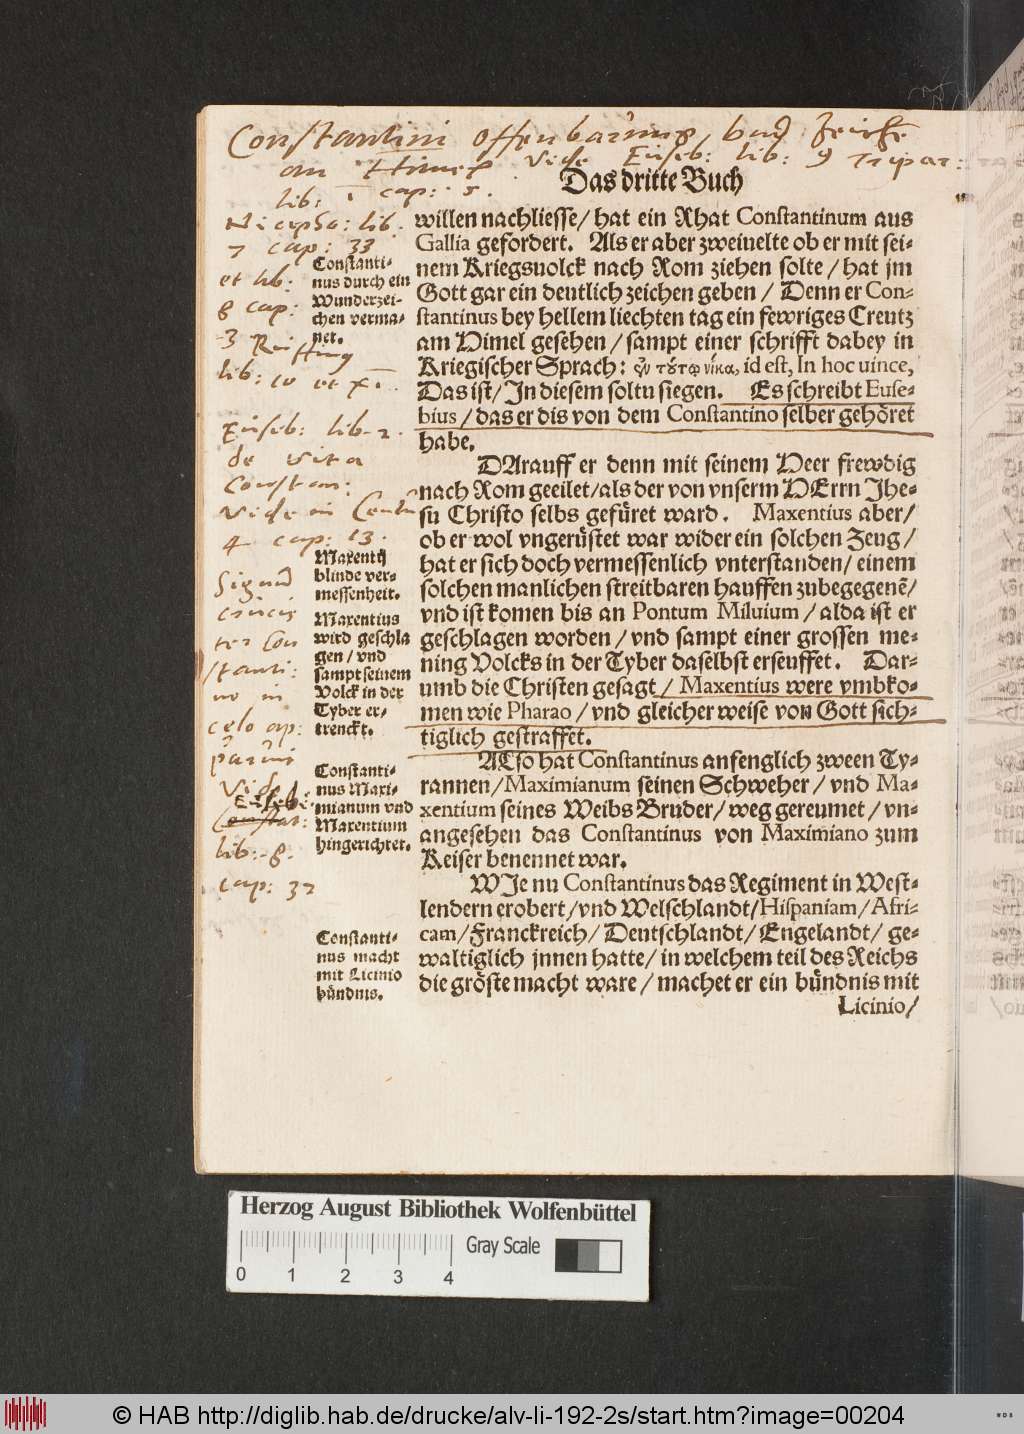 Constantini offenbarung, vnd Zeichen
am Himel Vide Euseb: lib: 9 Tripar:
lib: 1 cap: 5.
Das dritte Buch
Nicepho: lib.
7 cap: 33
et lib:
8 cap:
3 Ruffinus
lib: 10 et XI.
Euseb: lib. 2.
de vita
Constan:
Vide in Centu
4 cap: 13.
Signum
crucis
Con
stanti:
no in
celo ap:
paruit
Vide
Euseb:
lib: 8.
cap: 32
Constanti-
nus durch ein
Wunderzei-
chen verma-
net.
Maxentij
blinde ver-
messenheit.
Maxentius
wird geschla
gen / vnd
sampt seinem
Volck in der
Tyber er-
trenckt.
Constanti-
nus Maxi-
mianum vnd
Maxentium
hingerichtet.
Constanti-
nus macht
mit Licinio
bündnis.
willen nachliesse / hat ein Rhat Constantinum aus
Gallia gefordert. Als er aber zweiuelte ob er mit sei-
nem Kriegsuolck nach Rom ziehen solte / hat jm
Gott gar ein deutlich zeichen geben / Denn er Con-
stantinus bey hellem liechten tag ein fewriges Creutz
am Himel gesehen / sampt einer schrifft dabey in
Kriegischer Sprach: ἐν τούτῳ νίκα, id est, In hoc uince,
Das ist / In diesem soltu siegen. Es schreibt Euse-
bius / das er dis von dem Constantino selber gehöret
habe.
DArauff er denn mit seinem Heer frewdig
nach Rom geeilet / als der von vnserm HErrn Jhe-
su Christo selbs gefüret ward. Maxentius aber /
ob er wol vngerüstet war wider ein solchen Zeug /
hat er sich doch vermessenlich vnterstanden / einem
solchen manlichen streitbaren hauffen zubegegenē /
vnd ist komen bis an Pontum Miluium / alda ist er
geschlagen worden / vnd sampt einer grossen me-
ning Volcks in der Tyber daselbst erseuffet. Dar-
umb die Christen gesagt / Maxentius were vmbko-
men wie Pharao / vnd gleicher weise von Gott sich-
tiglich gestraffet.
ALso hat Constantinus anfenglich zween Ty-
rannen / Maximianum seinen Schweher / vnd Ma-
xentium seines Weibs Bruder / weg gereumet / vn-
angesehen das Constantinus von Maximiano zum
Keiser benennet war.
WJe nu Constantinus das Regiment in West-
lendern erobert / vnd Welschlandt / Hispaniam / Afri-
cam / Franckreich / Deutschlandt / Engelandt / ge-
waltiglich jnnen hatte / in welchem teil des Reichs
die gröste macht ware / machet er ein bündnis mit
Licinio /
Herzog August Bibliothek Wolfenbüttel
Gray Scale
0 1 2 3 4
© HAB http://diglib.hab.de/drucke/alv-li-192-2s/start.htm?image=00204